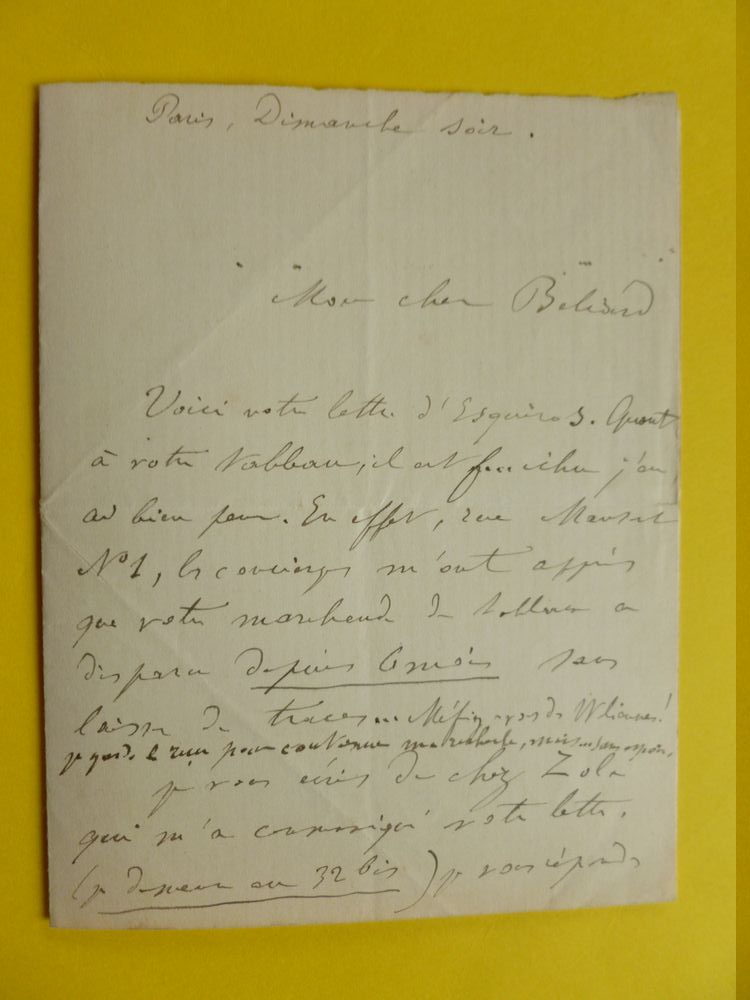 Paris, Dimanche soir.
Mon cher Béliard
Voici votre lettre d'Esquiros. Quant
à votre tableau, il est fichu j'en
ai bien peur. En effet, rue
N° 1, les concierges m'ont appris
que votre marchand de tableaux a
disparu depuis 6 mois sans
laisser de traces... Méfiez-vous de
je garde le reçu pour continuer ma recherche, mais... sans espoir.
je vous écris de chez Zola
qui m'a communiqué votre lettre.
(je demeure au 32 bis) je vous réponds